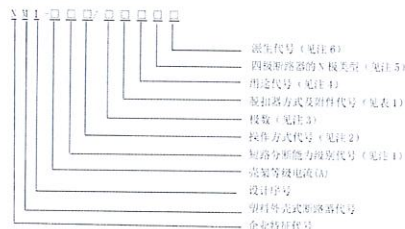 N M 1-□ □ □/□ □ □ □ □
派生代号(见注6)
四级断路器的N极类型(见注5)
用途代号(见注4)
脱扣器方式及附件代号(见表1)
极数(见注3)
操作方式代号(见注2)
短路分断能力级别代号(见注1)
壳架等级电流(A)
设计序号
塑料外壳式断路器代号
企业特征代号